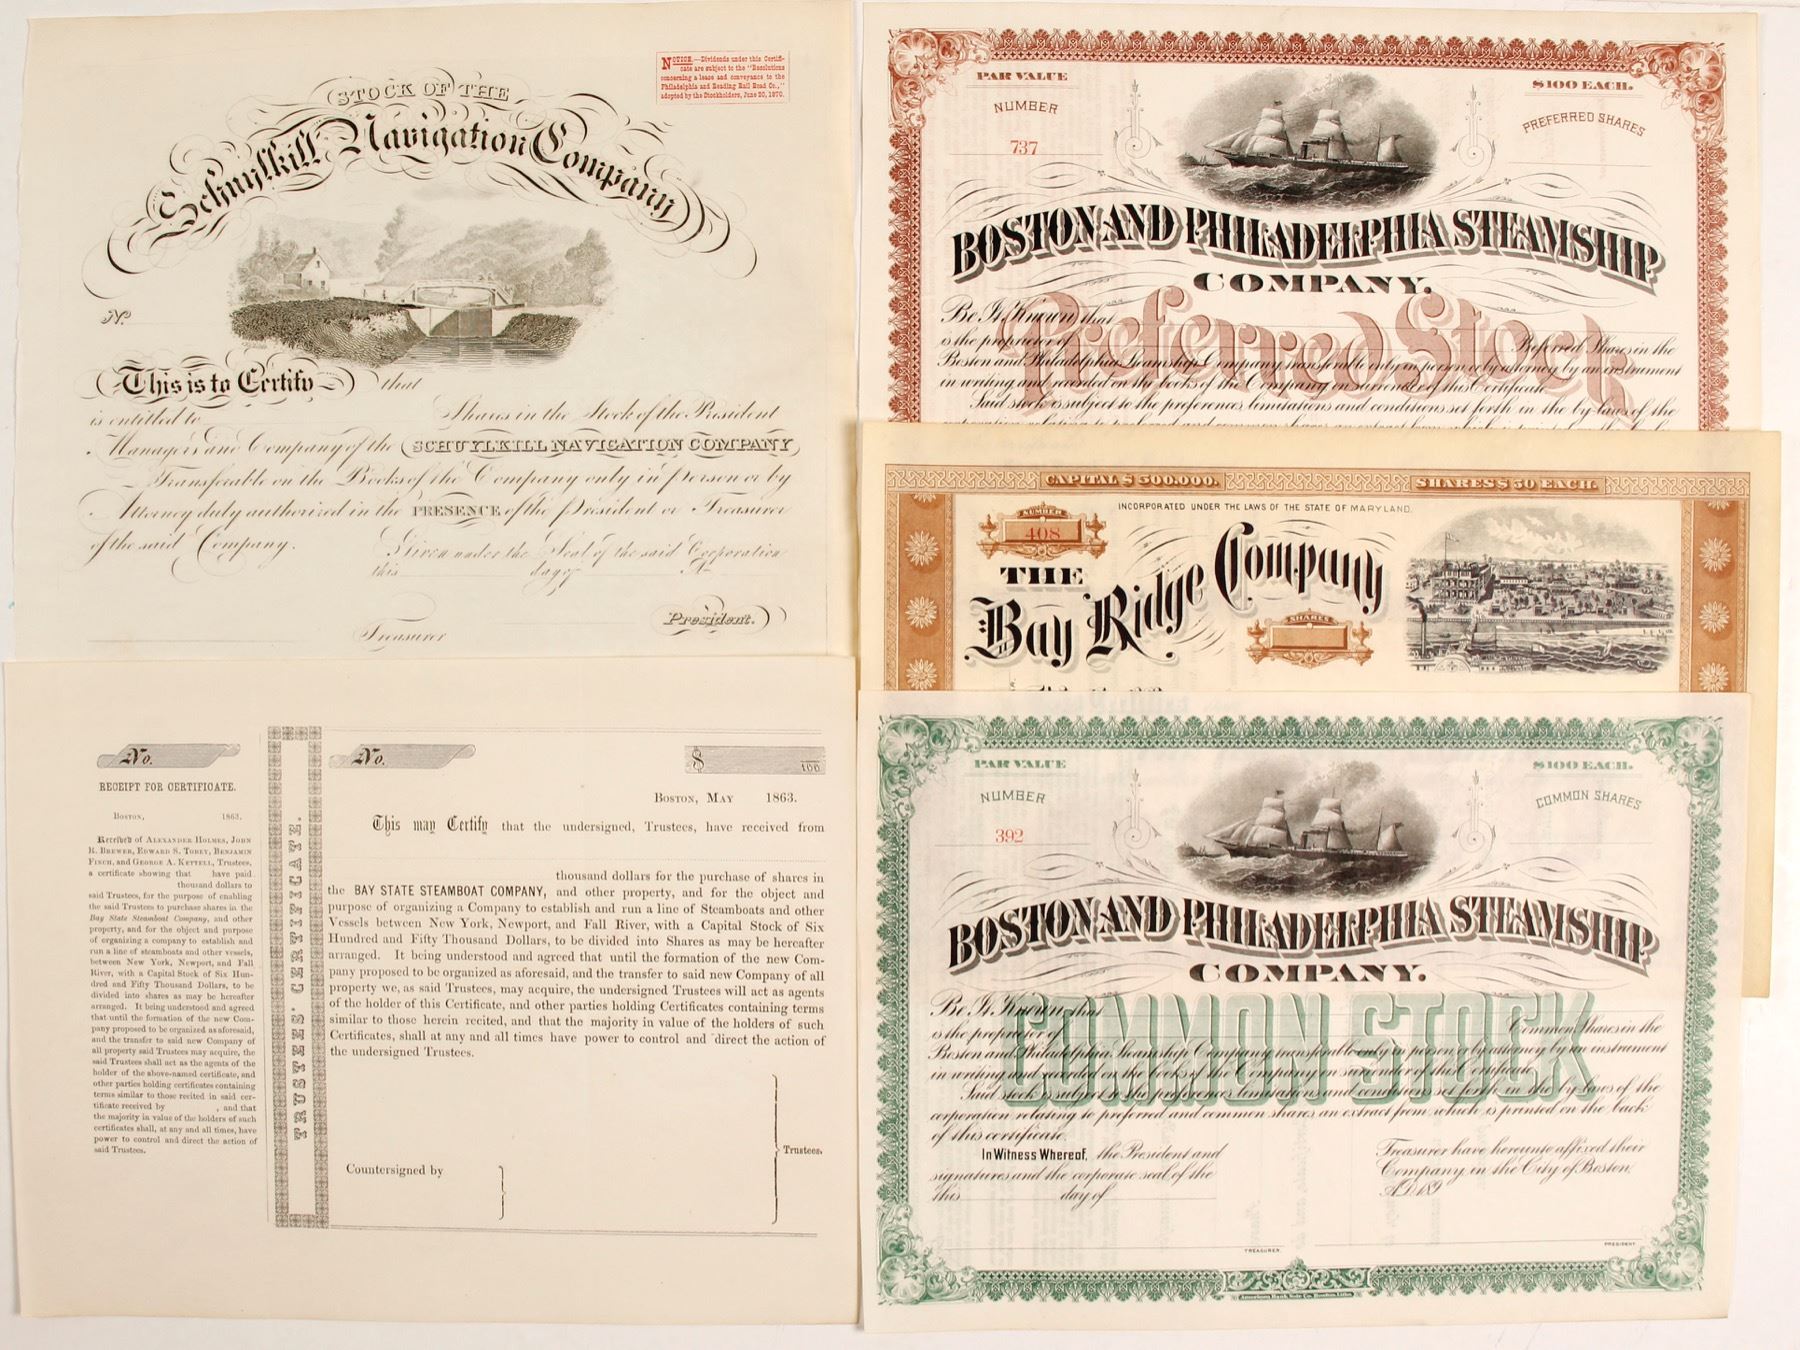 STOCK OF THE
Schuylkill Navigation Company
NOTICE.—Dividends under this Certifi-
cate are subject to the "Resolutions
concerning a lease and conveyance to the
Philadelphia and Reading Rail Road Co.,"
adopted by the Stockholders, June 20, 1870.
No.
This is to Certify that
is entitled to Shares in the Stock of the President
Managers and Company of the SCHUYLKILL NAVIGATION COMPANY
Transferable on the Books of the Company only in person or by
Attorney duly authorized in the PRESENCE of the President or Treasurer
of the said Company. Given under the Seal of the said Corporation
this day of A
Treasurer President.
No.
RECEIPT FOR CERTIFICATE.
BOSTON, 1863.
Received of ALEXANDER HOLMES, JOHN
R. BREWER, EDWARD S. TOBEY, BENJAMIN
FINCH, and GEORGE A. KETTELL, Trustees,
a certificate showing that have paid
thousand dollars to
said Trustees, for the purpose of enabling
the said Trustees to purchase shares in the
Bay State Steamboat Company, and other
property, and for the object and purpose
of organizing a company to establish and
run a line of steamboats and other vessels,
between New York, Newport, and Fall
River, with a Capital Stock of Six Hun-
dred and Fifty Thousand Dollars, to be
divided into shares as may be hereafter
arranged. It being understood and agreed
that until the formation of the new Com-
pany proposed to be organized as aforesaid,
and the transfer to said new Company of
all property said Trustees may acquire, the
said Trustees shall act as the agents of the
holder of the above-named certificate, and
other parties holding certificates containing
terms similar to those recited in said cer-
tificate received by , and that
the majority in value of the holders of such
certificates shall, at any and all times, have
power to control and direct the action of
said Trustees.
TRUSTEES' CERTIFICATE.
No. $ 100
BOSTON, MAY 1863.
This may Certify that the undersigned, Trustees, have received from
thousand dollars for the purchase of shares in
the BAY STATE STEAMBOAT COMPANY, and other property, and for the object and
purpose of organizing a Company to establish and run a line of Steamboats and other
Vessels between New York, Newport, and Fall River, with a Capital Stock of Six
Hundred and Fifty Thousand Dollars, to be divided into Shares as may be hereafter
arranged. It being understood and agreed that until the formation of the new Com-
pany proposed to be organized as aforesaid, and the transfer to said new Company of all
property we, as said Trustees, may acquire, the undersigned Trustees will act as agents
of the holder of this Certificate, and other parties holding Certificates containing terms
similar to those herein recited, and that the majority in value of the holders of such
Certificates, shall at any and all times have power to control and direct the action of
the undersigned Trustees.
Trustees.
Countersigned by
PAR VALUE $100 EACH.
NUMBER PREFERRED SHARES
737
BOSTON AND PHILADELPHIA STEAMSHIP
COMPANY.
Preferred Stock
Be It Known that
is the proprietor of Preferred Shares in the
Boston and Philadelphia Steamship Company, transferable only in person or by attorney by an instrument
in writing and recorded on the books of the Company on surrender of this Certificate.
Said stock is subject to the preferences, limitations and conditions set forth in the by-laws of the
corporation relating to preferred and common shares, an extract from which is printed on the back
CAPITAL $500.000. SHARES $50 EACH.
INCORPORATED UNDER THE LAWS OF THE STATE OF MARYLAND.
NUMBER
408
THE
Bay Ridge Company
SHARES
PAR VALUE $100 EACH.
NUMBER COMMON SHARES
392
BOSTON AND PHILADELPHIA STEAMSHIP
COMPANY.
COMMON STOCK
Be It Known that
is the proprietor of Common Shares in the
Boston and Philadelphia Steamship Company transferable only in person or by attorney by an instrument
in writing and recorded on the books of the Company on surrender of this Certificate.
Said stock is subject to the preferences, limitations and conditions set forth in the by-laws of the
corporation relating to preferred and common shares, an extract from which is printed on the back
of this certificate.
In Witness Whereof, the President and Treasurer have hereunto affixed their
signatures and the corporate seal of the Company, in the City of Boston,
this day of A.D. 189
TREASURER. PRESIDENT.
American Bank Note Co. Boston, Litho.